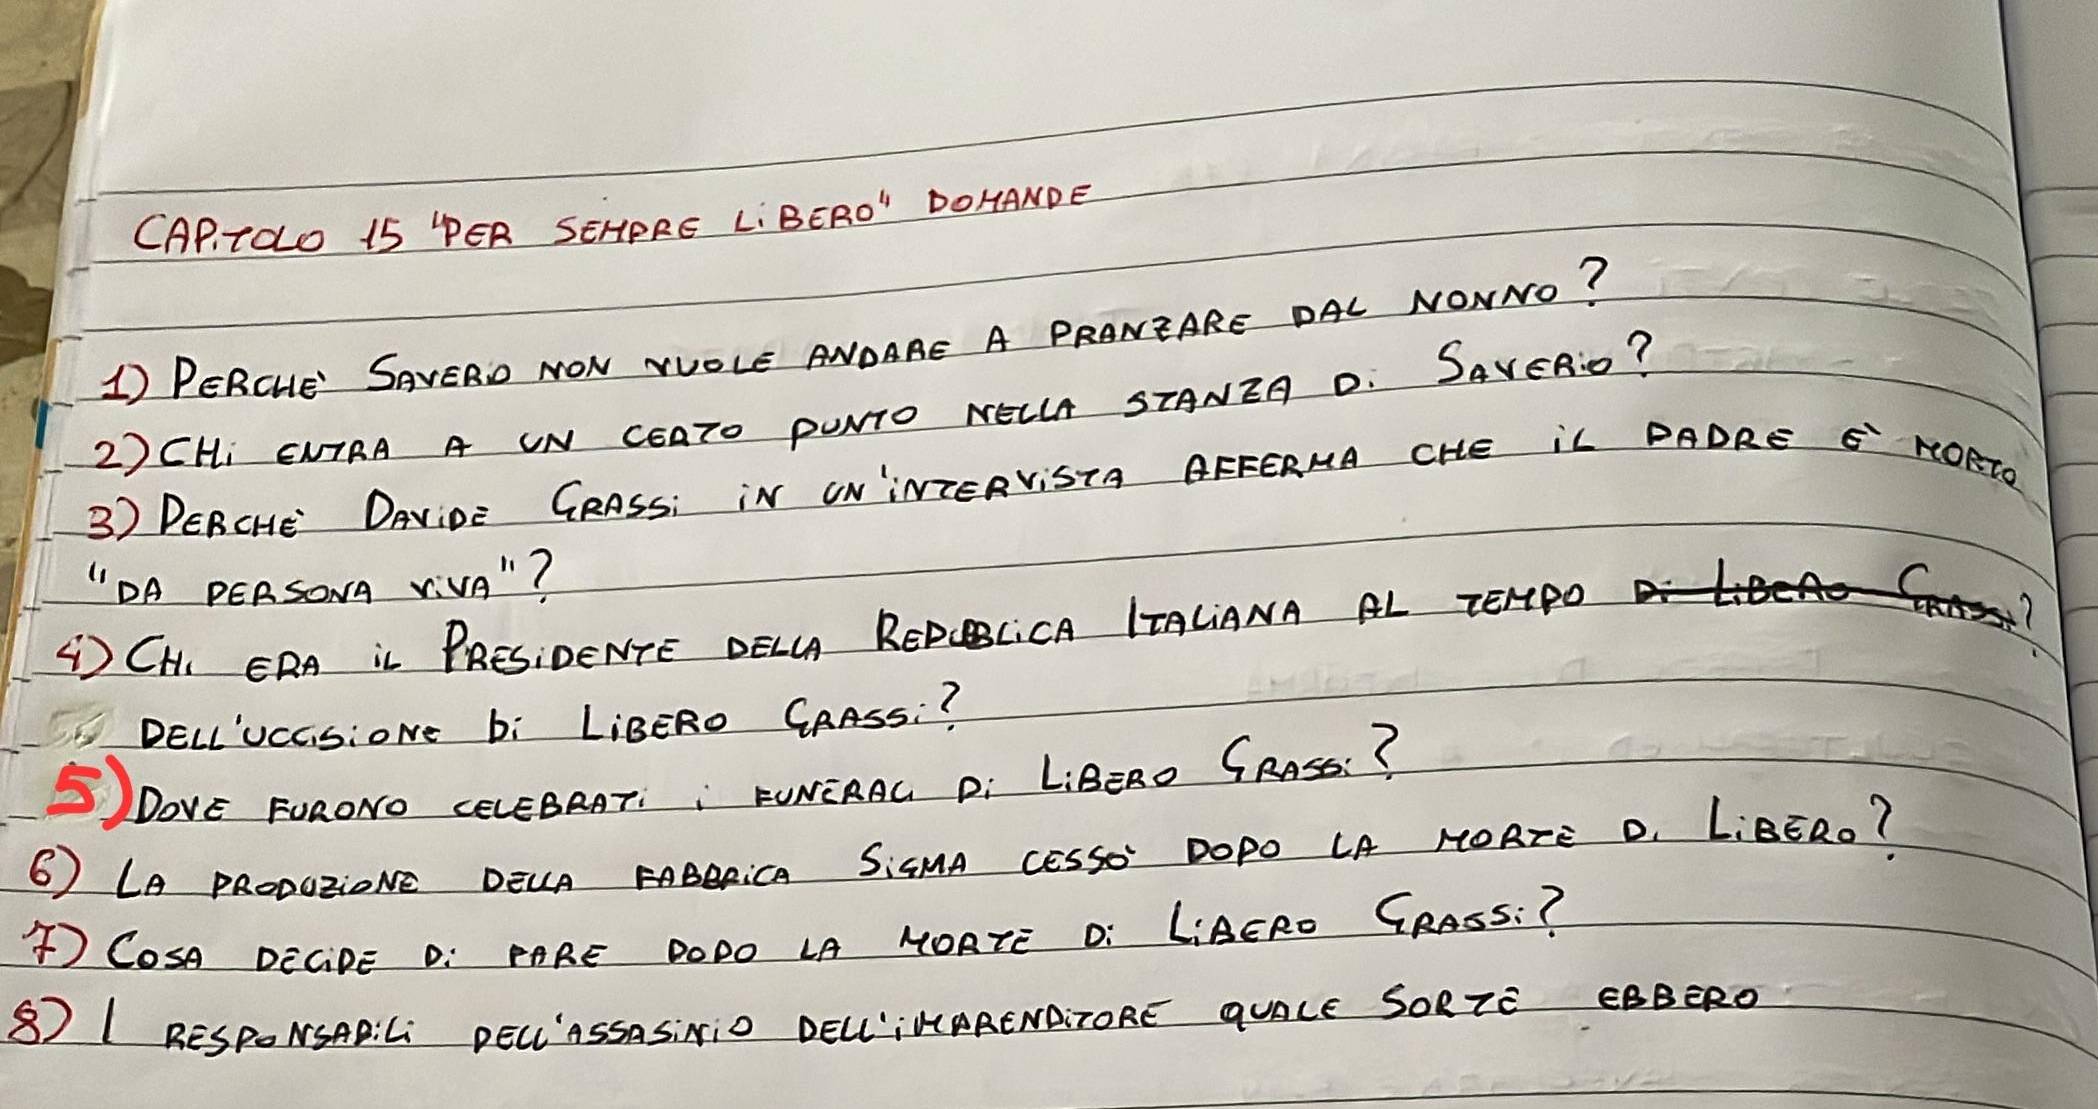 CAPITOLO 15 "PER SEMPRE LIBERO" DOMANDE
1) PERCHE' SAVERIO NON VUOLE ANDARE A PRANZARE DAL NONNO?
2) CHI ENTRA A UN CERTO PUNTO NELLA STANZA DI SAVERIO?
3) PERCHE' DAVIDE GRASSI IN UN'INTERVISTA AFFERMA CHE IL PADRE E' MORTO
"DA PERSONA VIVA"?
4) CHI ERA IL PRESIDENTE DELLA REPUBBLICA ITALIANA AL TEMPO DI LIBERO GRASSI?
DELL'UCCISIONE DI LIBERO GRASSI?
5) DOVE FURONO CELEBRATI I FUNERALI DI LIBERO GRASSI?
6) LA PRODUZIONE DELLA FABBRICA SIGMA CESSO' DOPO LA MORTE DI LIBERO?
7) COSA DECIDE DI FARE DOPO LA MORTE DI LIBERO GRASSI?
8) I RESPONSABILI DELL'ASSASINIO DELL'IMPARENDITORE QUALE SORTE EBBERO